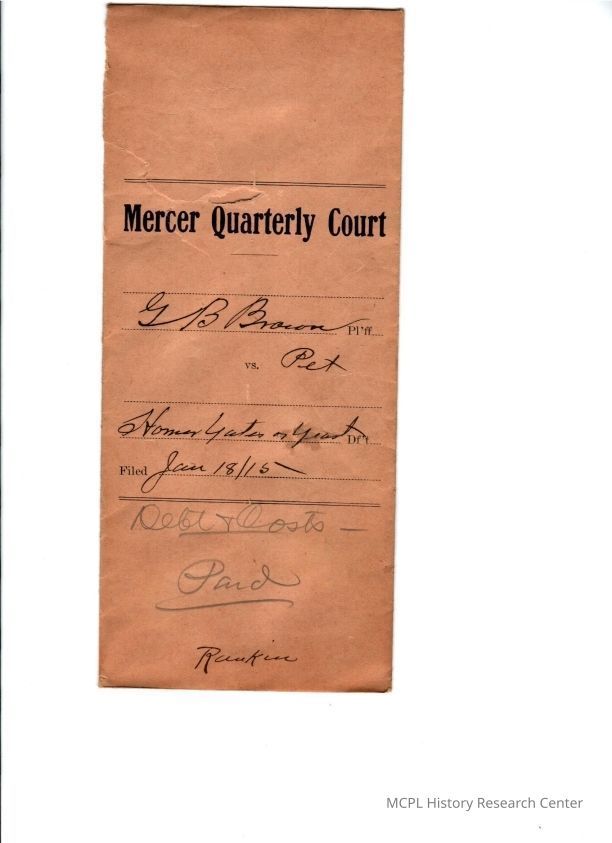 Mercer Quarterly Court
G B Brown Pl'ff.
vs. Pet
Homer Yates or Yeast Df't.
Filed Jan 18/15
Debt & Costs —
Paid
Rankin
MCPL History Research Center